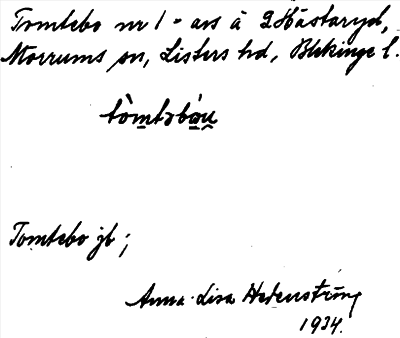 Tomtebo nr 1 - avs å 2 Hästaryd,
Mörrums sn, Listers hd, Blekinge l.
tòmtəbu̯
Tomtebo jb;
Anna-Lisa Hedenström
1934.